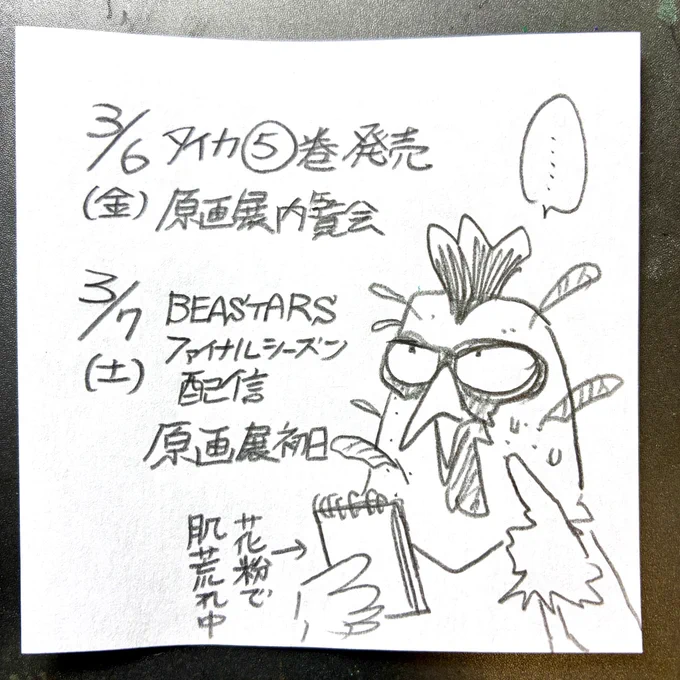 3/6 タイカ⑤巻発売
(金) 原画展内覧会
3/7 BEASTARS
(土) ファイナルシーズン
配信
原画展初日
花粉で
肌荒れ中
→
……